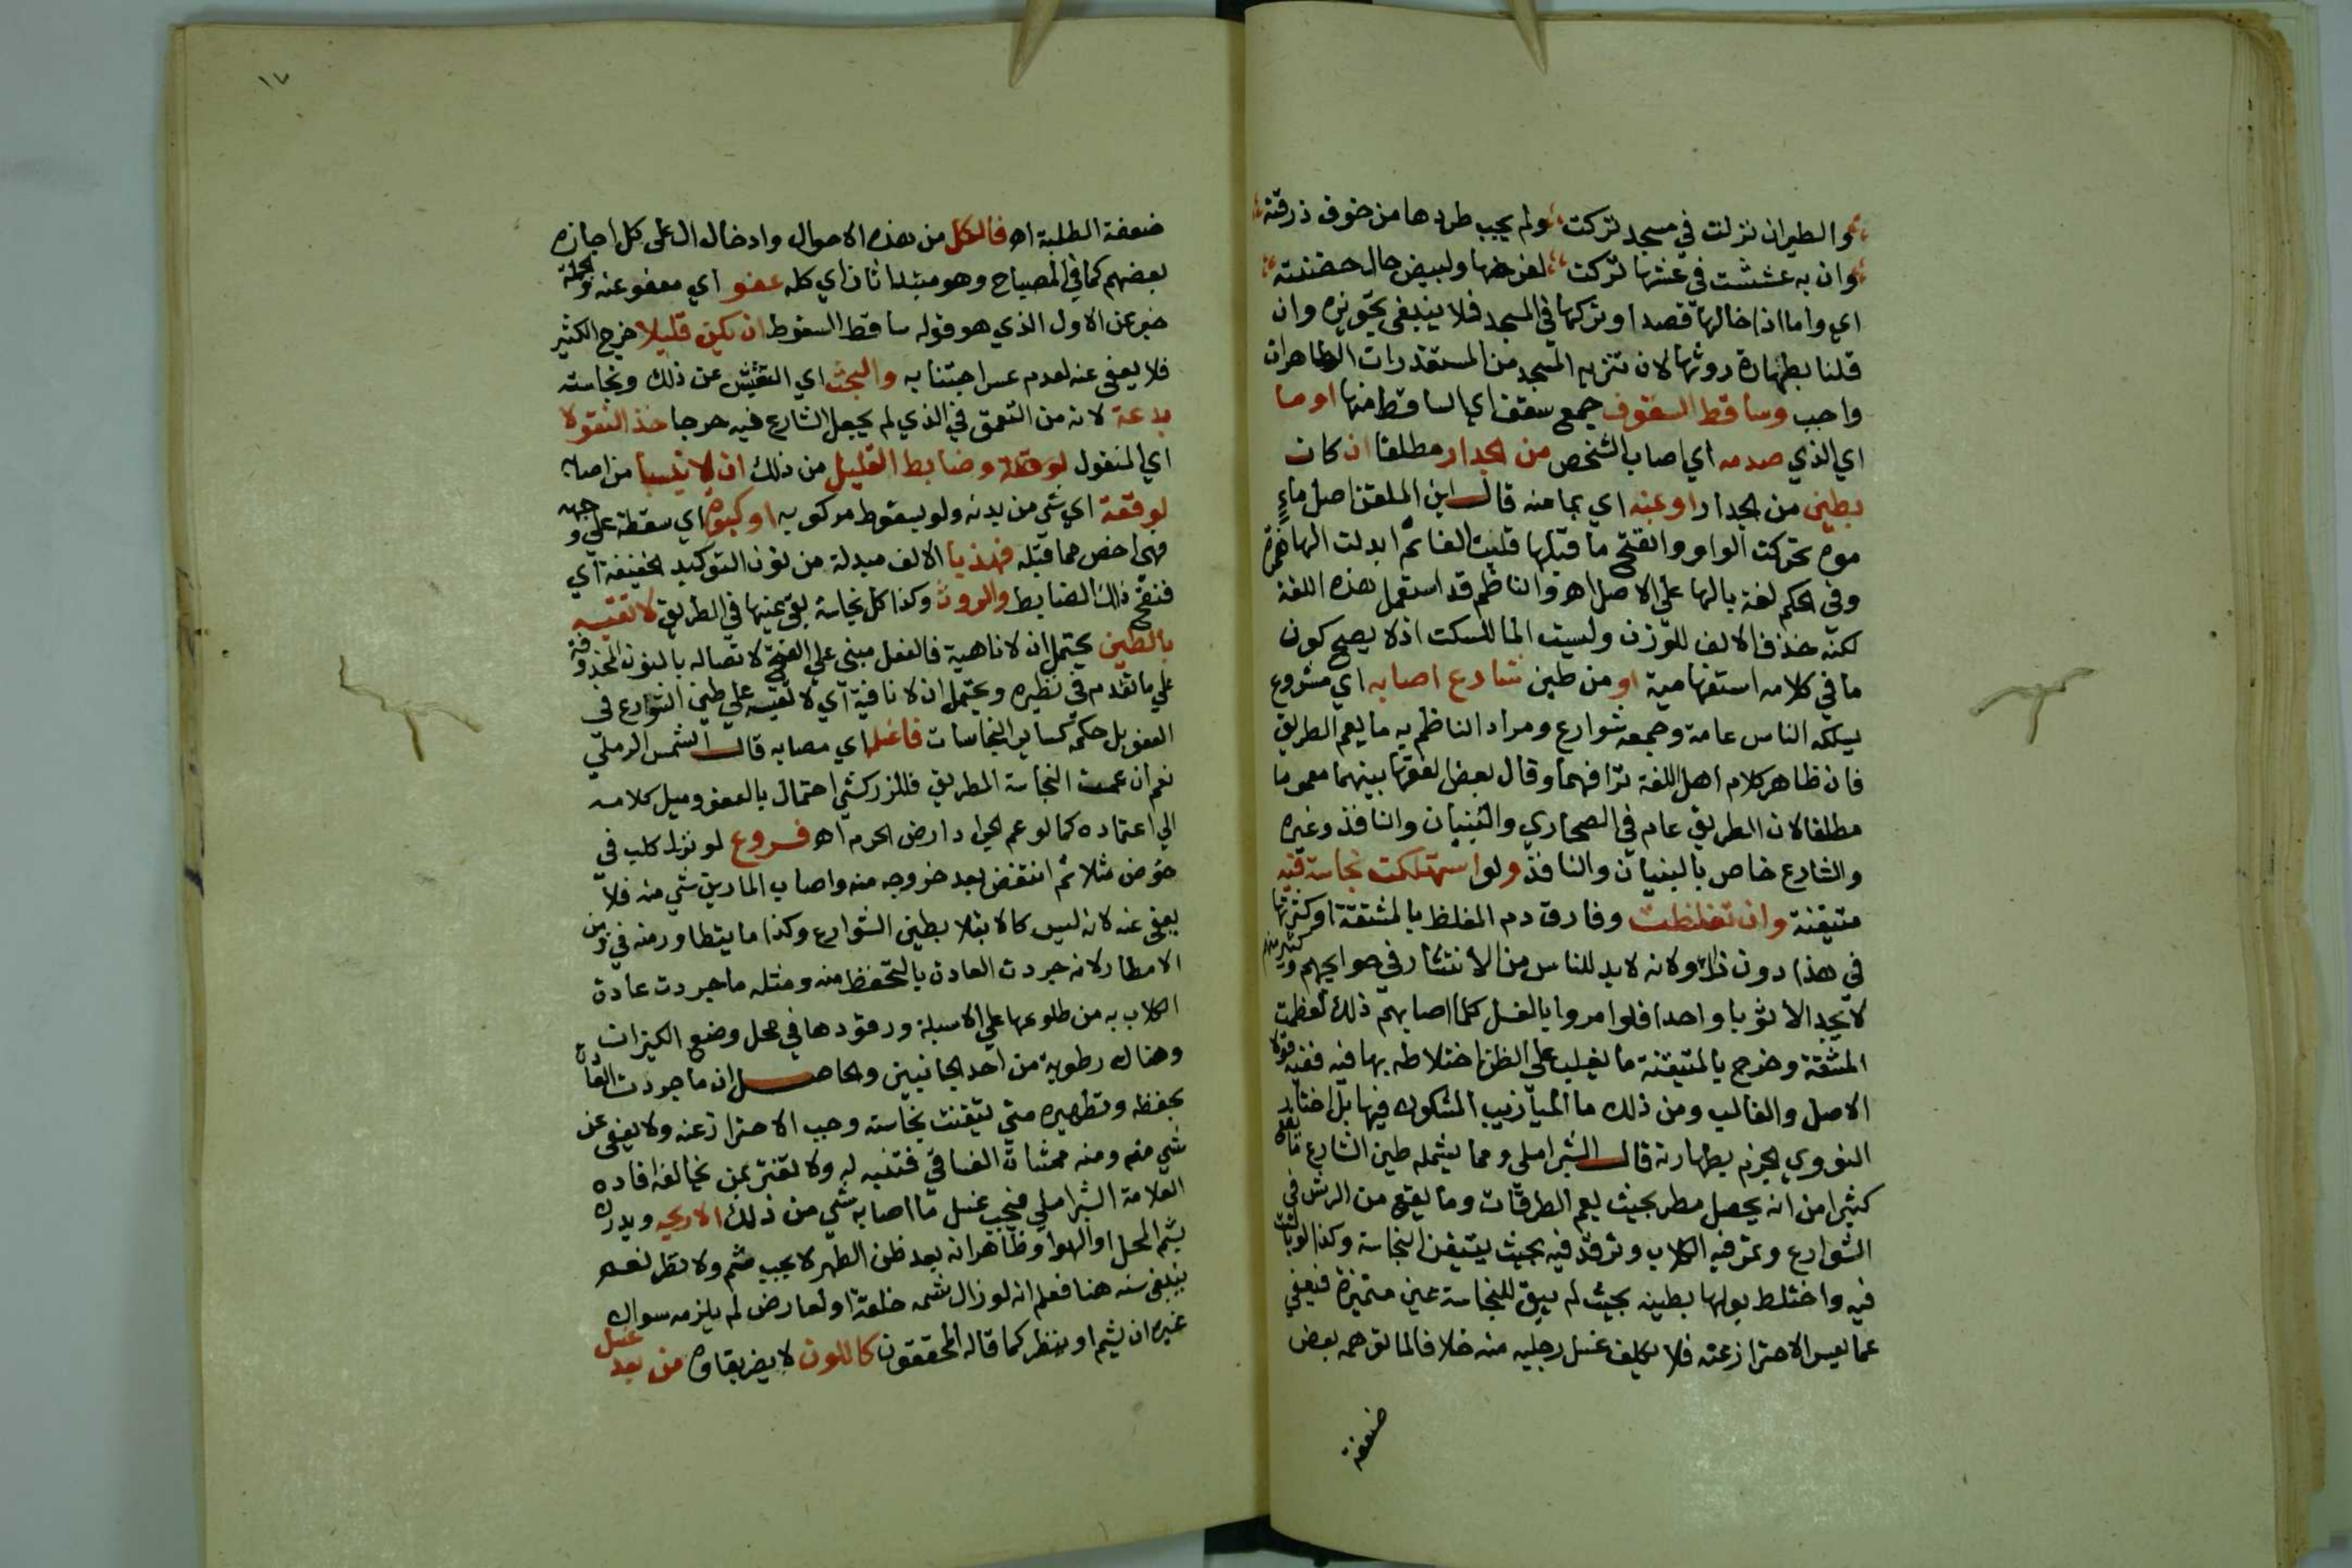 والطير ان نزلت في مسجد تركت ولم يجب طردها من خوف ذرقته
وان به عششت في عشها تركت لفرخها ولبيض حال حضنته
اي واما ادخالها قصدا وتركها في المسجد فلا ينبغي تجويزه وان
قلنا بطهارة روثها لان تنزيه المسجد من المستقذرات الطاهرات
واجب وساقط السقوف جمع سقف اي الساقط منها او ما
اي الذي صدمه اي اصاب الشخص من الجدار مطلقا ان كان
بطين من الجدار او عنه اي بما منه قال ابن الملقن اصل ماءٍ
موه تحركت الواو وانفتح ما قبلها قلبت الفا ثم ابدلت الها همزة
وفي الحكم لغة بالها علي الاصل اهـ والناظم قد استعمل هذه اللغة
لكنه حذف الالف للوزن وليست الها للسكت اذ لا يصح كون
ما في كلامه استفهامية او من طين شارع اصابه اي مشروع
يسلكه الناس عامة وجمعه شوارع ومراد الناظم به ما يعم الطريق
فان ظاهر كلام اهل اللغة ترادفهما وقال بعض الفقها بينهما عموما
مطلقا لان الطريق عام في الصحاري والبنيان والنافذ وغيره
والشارع خاص بالبنيان والنافذ ولو استهلكت نجاسة فيه
متيقنة وان تغلظت وفارق دم المغلظ بالمشقة او كثرتها
في هذا دون ذاك ولانه لابد للناس من الانتشار في حوايجهم وكثير منهم
لا يجد الا ثوبا واحدا فلو امروا بالغسل كلما اصابهم ذلك لعظمت
المشقة وخرج بالمتيقنة ما يغلب علي الظن اختلاطه بها فيه ففيه قولا
الاصل والغالب ومن ذلك ما الميازيب المشكوك فيها بل اختار
النووي الجزم بطهارته قال الشبراملسي ومما يشمله طين الشارع ما يقع
كثيرا من انه يحصل مطر بحيث يعم الطرقات وما يقع من الرش في
الشوارع وتمر فيه الكلاب وترقد فيه بحيث يتيقن النجاسة وكذا لو بالت
فيه واختلط بولها بطينه بحيث لم يبق للنجاسة عين متميزة فيعفي
عما يعسر الاحتراز عنه فلا يكلف غسل رجليه منه خلافا لما توهمه بعض
ضعفة
١٧
ضعفة الطلبة اهـ فالكل من هذه الاحوال وادخال ال علي كل اجازه
بعضهم كما في المصباح وهو مبتدا ثان اي كله عفو اي معفو عنه والجملة
خبر عن الاول الذي هو قوله ساقط السقوط ان يكن قليلا خرج الكثير
فلا يعفي عنه لعدم عسر اجتنابه والبحث اي التفتيش عن ذلك ونجاسته
بدعة لانه من التعمق في الذي لم يجعل الشارع فيه حرجا خذ النقولا
اي المنقول وضابط القليل من ذلك ان لا ينسبا من اصابه
لوقعة اي شي من بدنه ولو بسقوط مركوبه او كبوة اي سقطة علي وجهه
فهي اخص مما قبله فهذبا الالف مبدلة من نون التوكيد الخفيفة اي
فنقح ذلك الضابط والروث وكذا كل نجاسة بقي عينها في الطريق لا تقيسه
بالطين يحتمل ان لا ناهية فالفعل مبني علي الفتح لاتصاله بالنون المحذوفة
علي ما تقدم في نظيره ويحتمل ان لا نافية اي لا تقيسه علي طين الشوارع في
العفو بل حكمه كساير النجاسات فاغسله اي مصابه قال الشمس الرملي
نعم ان عمت النجاسة الطريق فللزركشي احتمال بالعفو وميل كلامه
الي اعتماده كما لو عم الجراد ارض الحرم اهـ فروع لو نزل كلب في
حوض مثلا ثم انتفض بعد خروجه منه واصاب المارين شي منه فلا
يعفي عنه لانه ليس كالابتلا بطين الشوارع وكذا ما يتطاير منه في زمن
الامطار لانه جردت العادة بالتحفظ منه ومثله ما جردت عادة
الكلاب به من طلوعها علي الاسبلة ورقودها في محل وضع الكيزان
وهناك رطوبة من احد الجانبين والحاصل ان ما جردت العادة
بحفظه وتطهيره متي تيقنت نجاسته وجب الاحتراز عنه ولا يعفي عن
شي منه ومنه ممشاة الفساقي فتنبه له ولا تغتر بمن يخالفه افاده
العلامة الشبراملسي فيجب غسل ما اصابه شي من ذلك الا ريحه ويدرك
بشم المحل او الهوا وظاهر انه بعد ظن الطهر لا يجب شم ولا نظر نعم
ينبغي سنه هنا فعلم انه لو زال شمه خلقة او لعارض لم يلزمه سوال
غيره ان يشم او ينظر كما قاله المحققون كاللون لا يضر بقاوه من بعد غسل